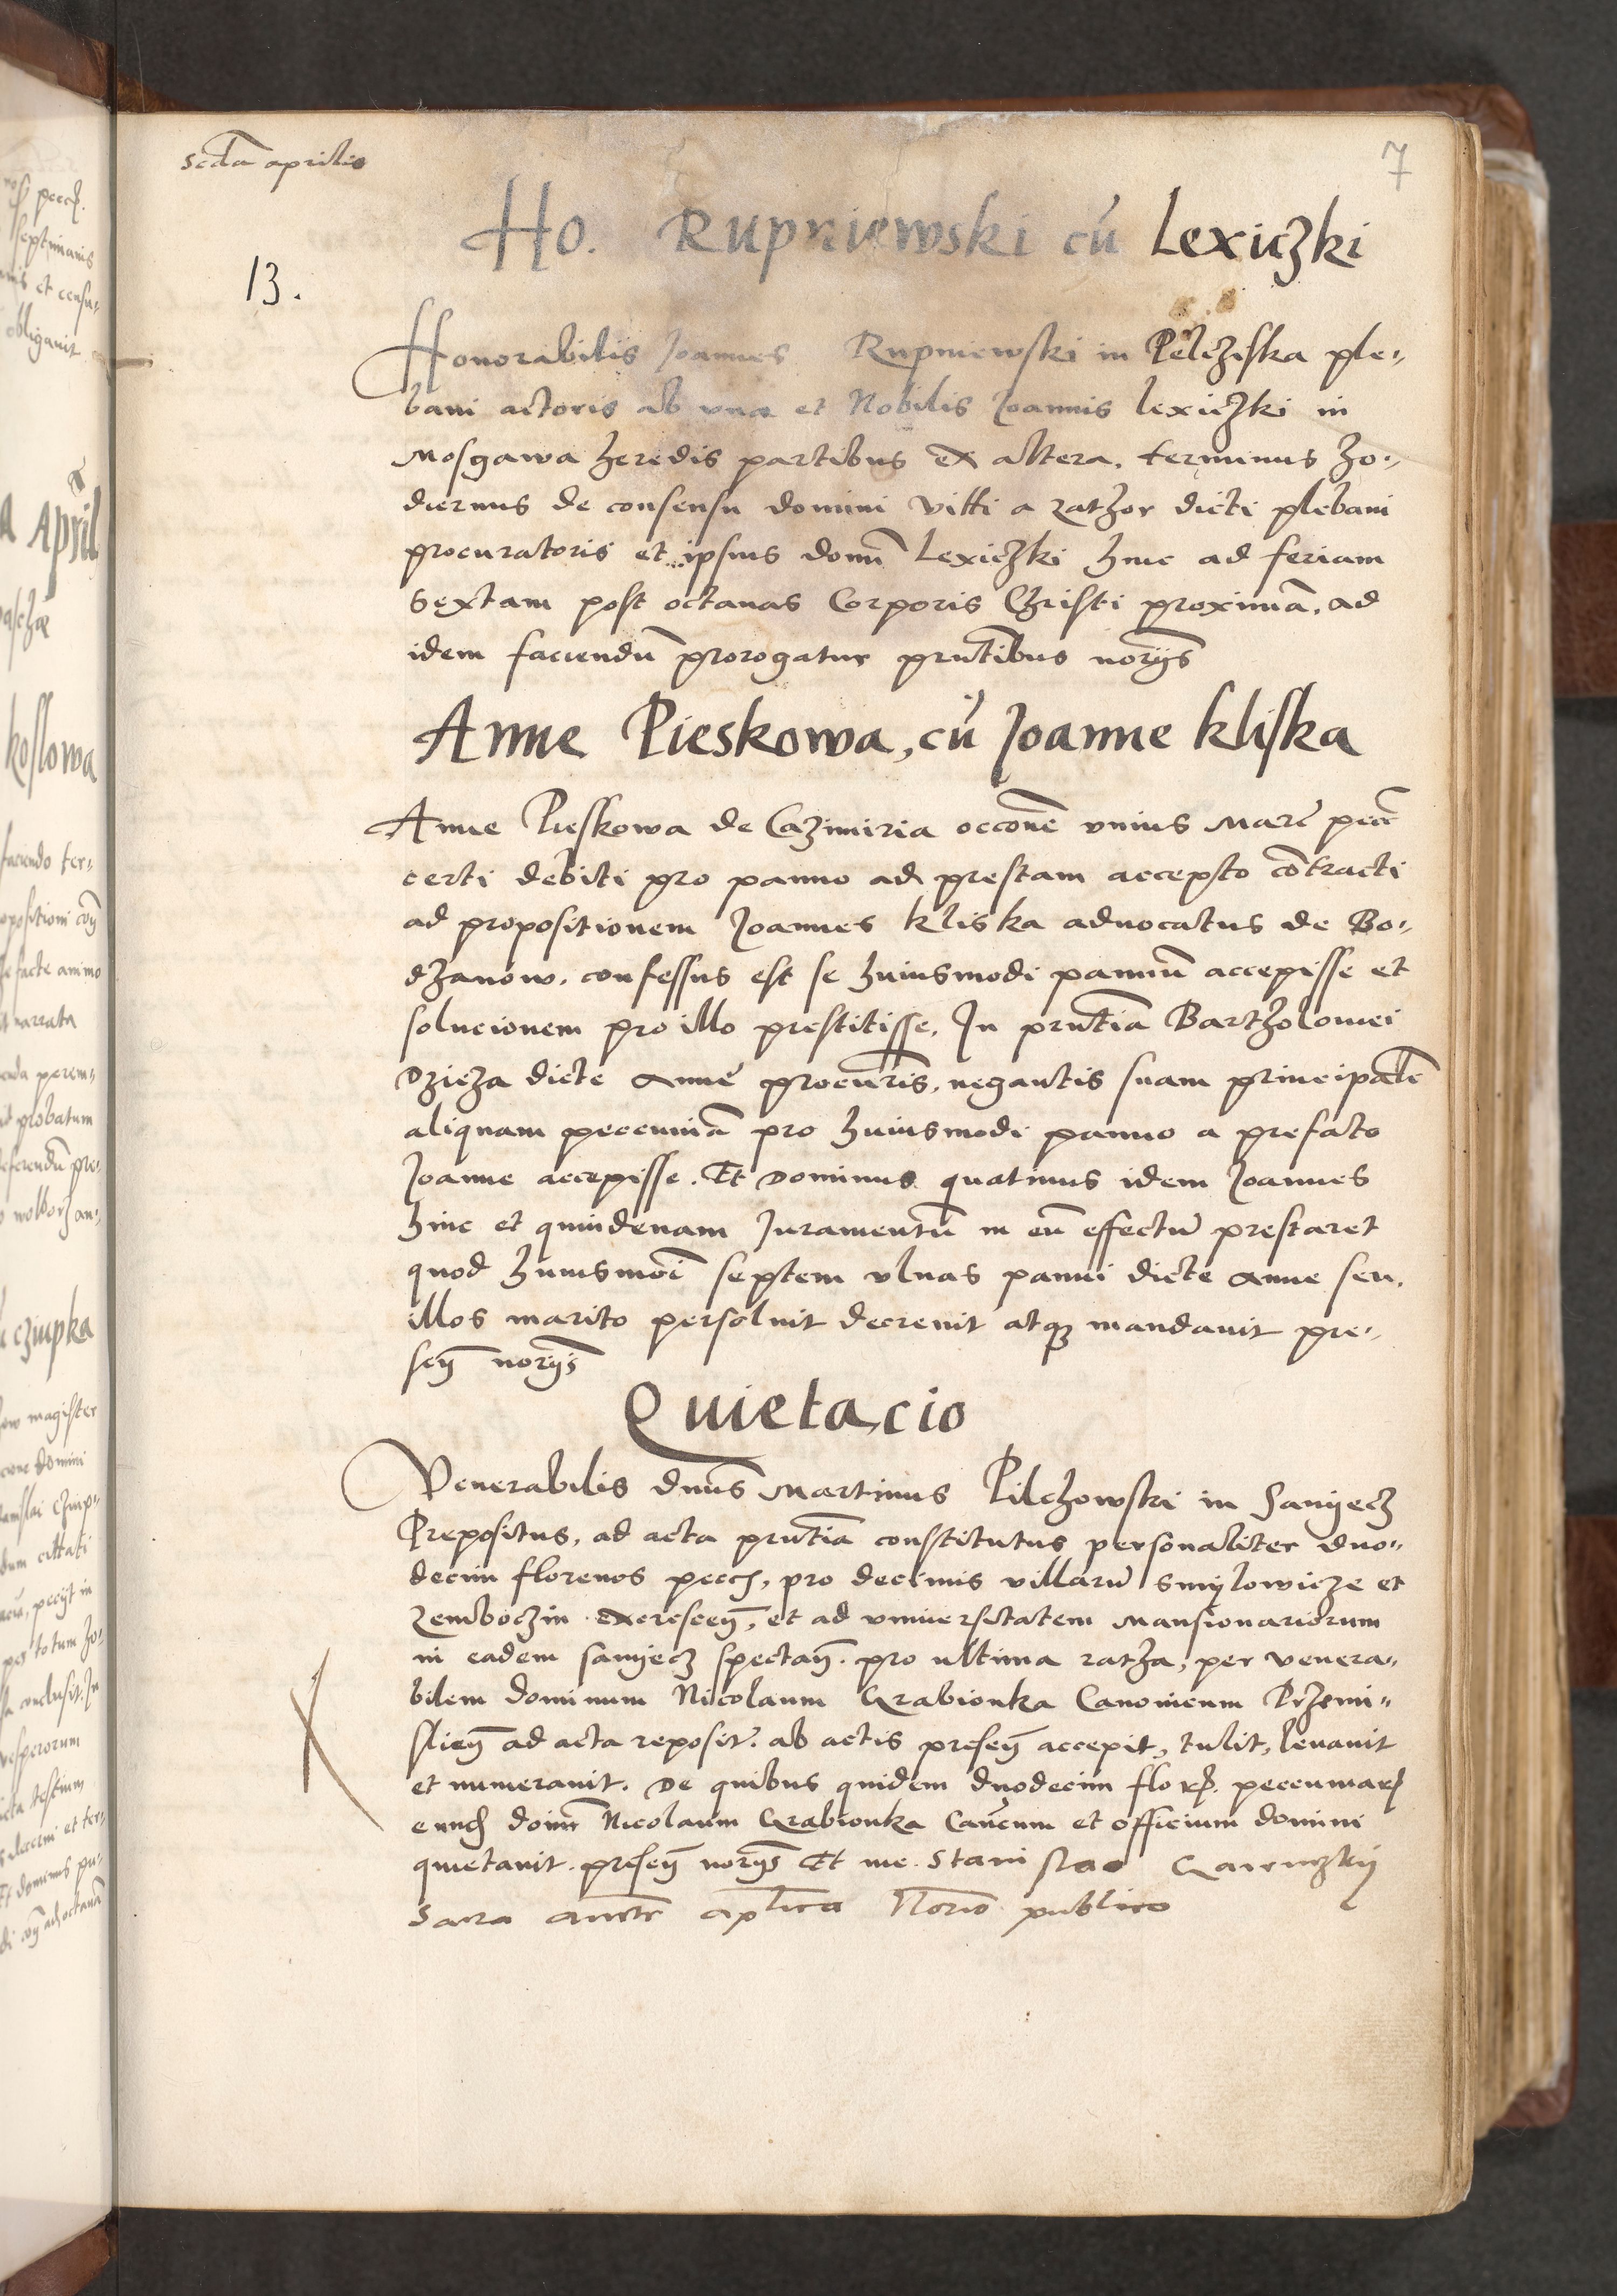 Scda aprilis
7
Ho. Rupniewski cũ Lexiczki
13.
Honorabilis Joannes Rupniewski in Pelcziska ple„
bani actoris ab vna et Nobilis Joannis lexiczki in
Mosgawa heredis partibus ex altera. terminus ho„
diernus de consensu domini Vitti a Zathor dicti plebani
procuratoris et ipsius domĩ Lexiczki hinc ad feriam
Sextam post octauas Corporis Christi proximã, ad
idem faciendũ prorogatur pñtibus norijs
Anne Pieskowa, cũ Joanne kliska
Anne Pieskowa de Cazimiria occõne vnius Marc̃ pecc̃
certi debiti pro panno ad prestam accepto cõtracti
ad propositionem Joannes kliska aduocatus de Bo„
dzanow. confessus est se huiusmodi pannũ accepisse et
solucionem pro illo prestitisse. In pñtia Bartholomei
Dzicza dicte Anne procuris, negantis suam principalẽ
aliquam peccuniã pro huiusmodi panno a prefato
Joanne accepisse. Et Dominus quatinus idem Joannes
hinc et quindenam Juramentũ in eũ effectũ prestaret
quod huiusmoi septem vlnas panni dicte Anne seu.
illos marito persoluit decreuit atqʒ mandauit pre„
señ norijs
Quietacio
Venerabilis dñus Martinus Pilchowski in Sanyecz
Prepositus, ad acta pñtia constitutus personaliter duo„
decim florenos pecc, pro decimis villarũ Smylowicze et
Zemboczin excresceñ, et ad vniuersitatem Mansionariorum
in eadem sanyecz spectañ. pro ultima ratha, per venera„
bilem dominum Nicolaum Grabionka Canonicum Przemi„
slieñ ad acta reposit̃. ab actis preseñ accepit, tulit, leuauit
et numerauit. De quibus quidem duodecim flor. peccuniar
eund doim Nicolaum Grabionka Cañcum et officium domini
quietauit. preseñ norijs Et me. Stanislao
Sacra auctẽ aplica Norio publico